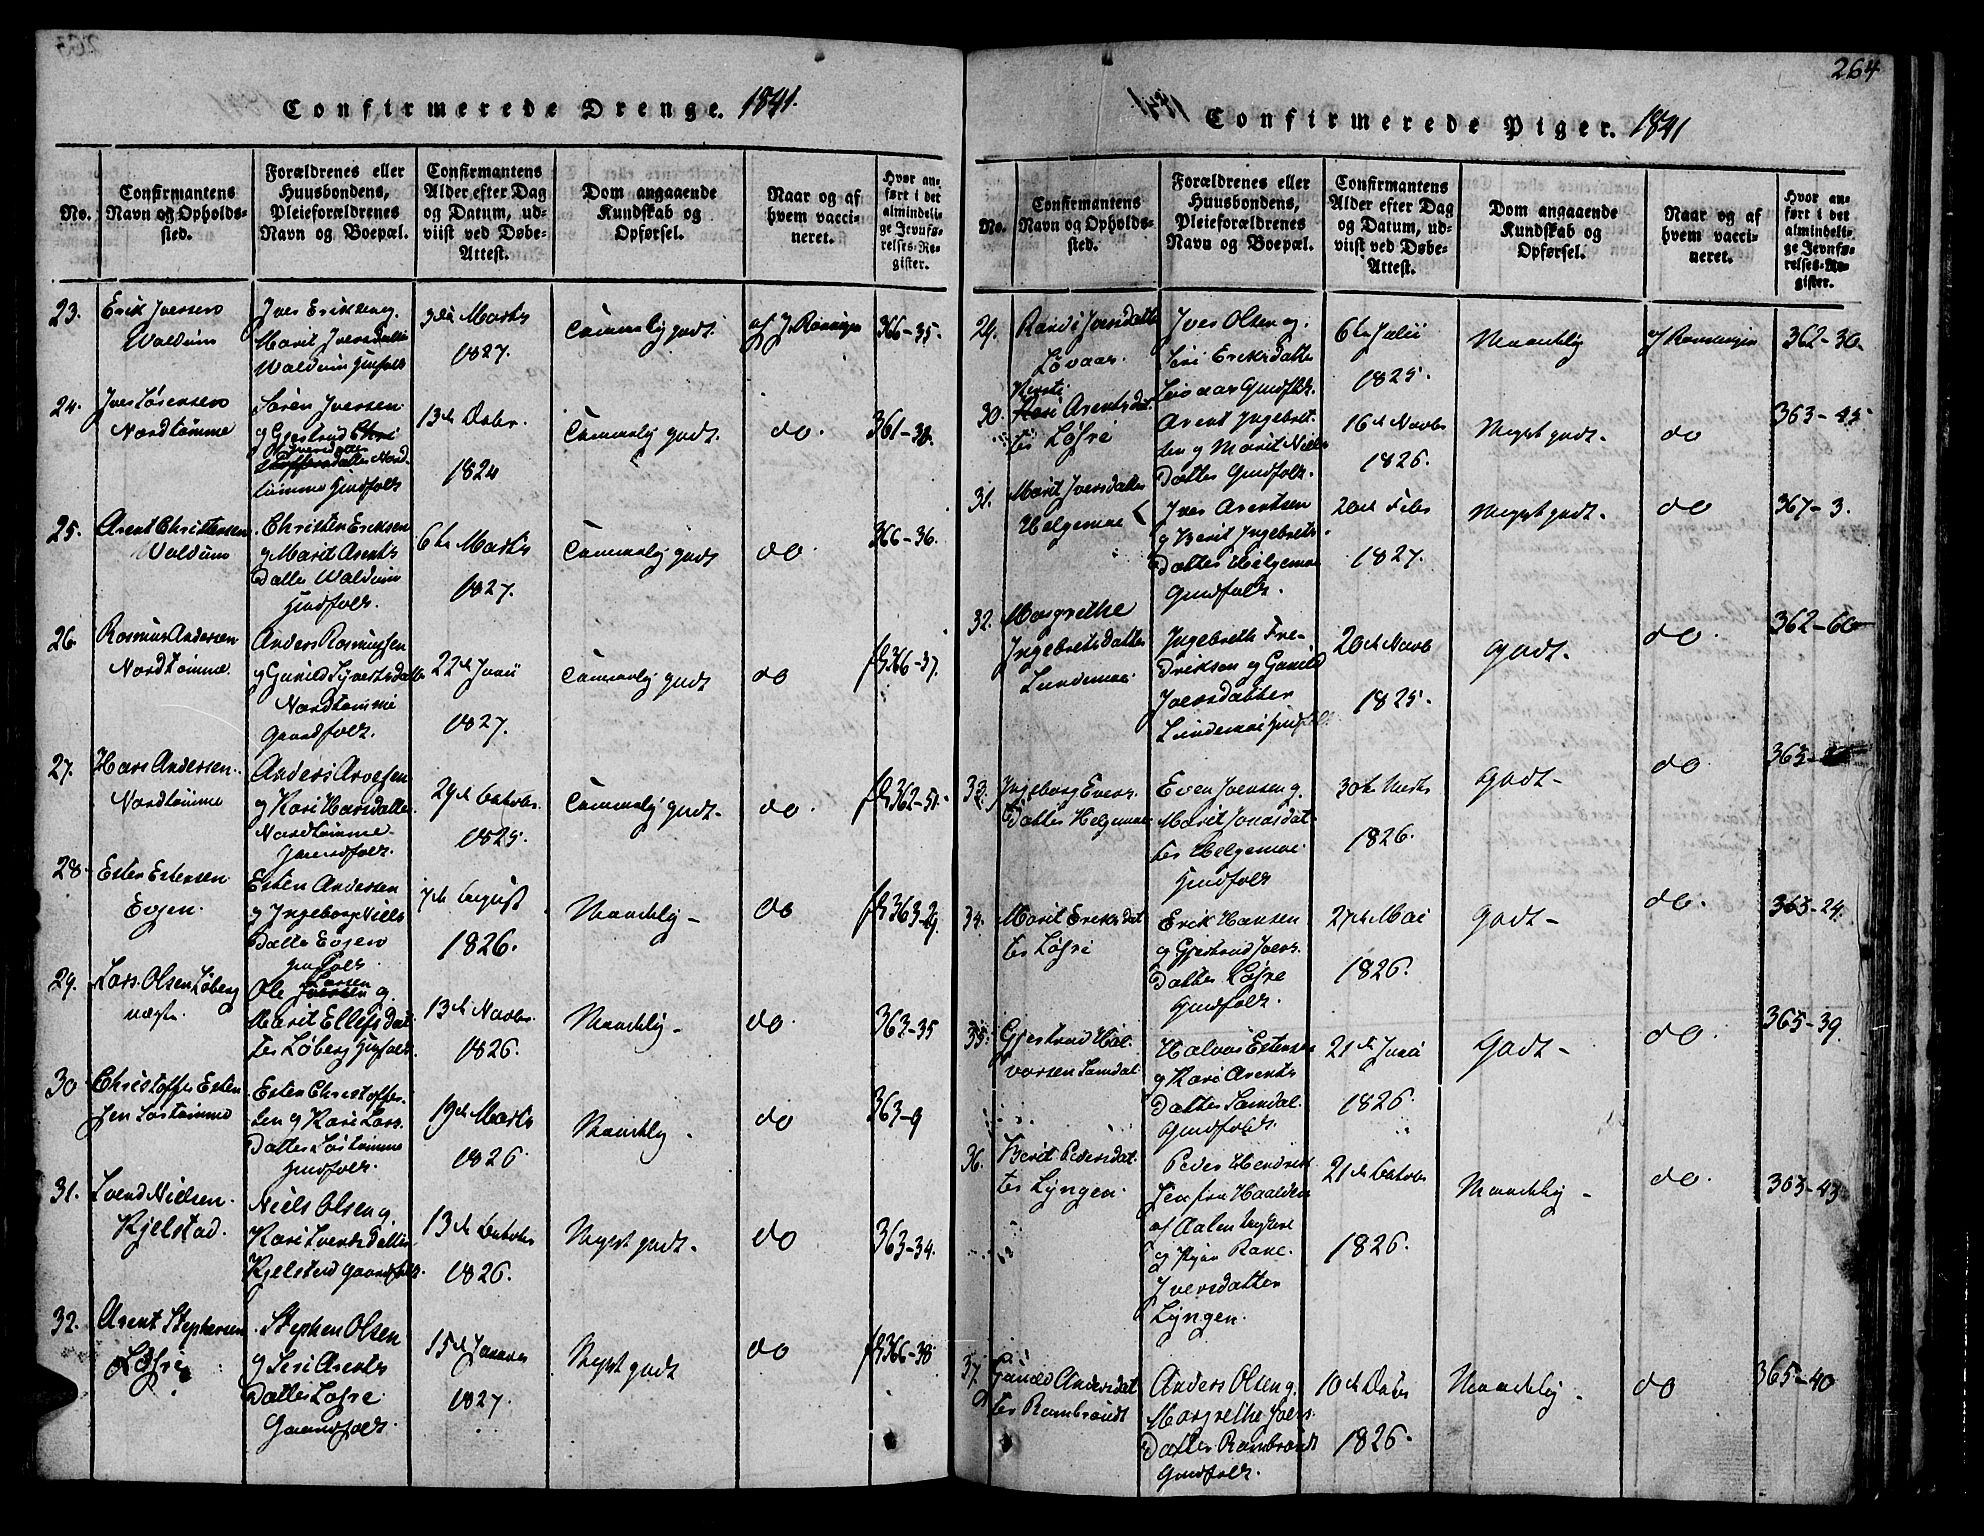 264
Confirmerede Drenge. 1841.
No.
Confirmantens Navn og Opholds-sted.
Forældrenes eller Huusbondens, Pleieforældrenes Navn og Boepæl.
Confirmantens Alder efter Dag og Datum, ud-viist ved Døbe-Attest.
Dom angaaende Kundskab og Opførsel.
Naar og af hvem vacci-neret.
Hvor an-ført i det almindeli-ge Jevnfø-relses-Re-gister.
23.
Erik Iversen
Waldum
Iver Eriksen g.
Marit Iversdatter
Waldum
Marts
1827.
Temmelig godt.
366-35.
24.
Iver Sørensen
Nordtømme
Søren Iversen
g Gjertrud Chri
Iversdatter
Nord-
tømme
13de Decbr.
1824
Temmelig godt.
do.
361-38.
25.
Arent Christensen
Waldum
Christen Eriksen
g Marit Arents
Datter Waldum
6te Marts
1827.
Temmelig godt
do.
366-36.
26
Rasmus Andersen
Nordtømme.
Anders Rasmussen
g Gunild Sivertsdatter
Nordtømme
Gaardfolk.
22de Junii
1827.
Temmelig godt
do
366-37.
27.
Hans Andersen
Nordtømme
Anders Arvesen
g Kari Hansdatter
Nordtømme
Gaardfolk.
29de Octobr.
1825.
Temmelig godt.
do.
362-51.
28.
Esten Estensen
Evjen.
Esten Andersen
g Ingeborg Niels
Datter Evjen
7de August
1826.
Maadelig -
do
363-29.
29.
Lars Olsen Løberg
Larsen
Ole Iversen g.
Marit Ellefsdat-
ter Løberg
13de Novbr.
1826.
Maadelig -
do.
363-35
30
Christoffer Esten
sen Løstømme
Esten Christoffer
sen g Kari Lars
Datter Løstømme
19de Marts
1826
Maadelig -
do
363-9
31.
Svend Nielsen
Kjelstad.
Niels Olsen g
Kari Svendsdatter
Kjelstad Gaardfolk.
13de Octobr
1826.
Meget godt.
do
363-34.
32.
Arent Stephensen
Løhre
Stephen Olsen
g Seri Arents
Datter Løhre
Gaardfolk.
15de Januar
1827.
Meget godt
do
366-38
Confirmerede Piger. 1841
No.
Confirmantens Navn og Opholds-sted.
Forældrenes eller Huusbondens, Pleieforældrenes Navn og Boepæl.
Confirmantens Alder efter Dag og Datum, ud-viist ved Døbe-Attest.
Dom angaaende Kundskab og Opførsel.
Naar og af hvem vacci-neret.
Hvor an-ført i det almindeli-ge Jevnfø-relses-Re-gister.
29.
Randi Iversdatter
Løvaas.
Iver Olsen g.
Siri Eriksdatter
6te Julii
1825.
Maadelig
362-30.
30.
Kersti
Arentsdat
ter Løhre
Arent Ingebret
sen g Marit Niels
Datter
16de Novbr
1826.
Meget godt.
do
363-45
31.
Marit Iversdatter
Helgemoe
Iver Arentsen
g Berit Ingebrets
Datter Helgemoe
20de Febr
1827.
Meget godt.
do
367-3.
32.
Margrethe
Ingebretsdatter
Lundemoe
Ingebreth Fre-
driksen og Gunild
Iversdatter
Lundemoe
20de Novb
1825.
Godt.
do.
362-60
33.
Ingeborg Evens
Datter Helgemoe
Even Jensen g.
Marit Jonasdat-
ter Helgemoe
30te
1826.
Godt -
do.
363-
34.
Marit Eriksdat
ter Løhre
Erik Hansen
g Gjertrud Ivers
Datter Løhre
27de Mai
1826.
Godt -
do.
363-24.
35.
Gjertrud Hal
vorsen Samdal
Halvor Estensen
g Kari Arents
Datter Samdal.
21de Junii
1826.
Godt -
do.
365-39.
36.
Berit Pedersdat.
ter Lyngen.
Peder Hendrik
sen fra Haalden
af Aalen
Rane.
Iversdatter
Lyngen.
21de Octobr
1826.
Maadelig -
do.
363-43
37.
Gunild Andersdat
ter Rambraudt
Anders Olsen g.
Margrethe Ivers
Datter Rambraudt
10de Decbr
1826.
Maadelig -
do
365-40